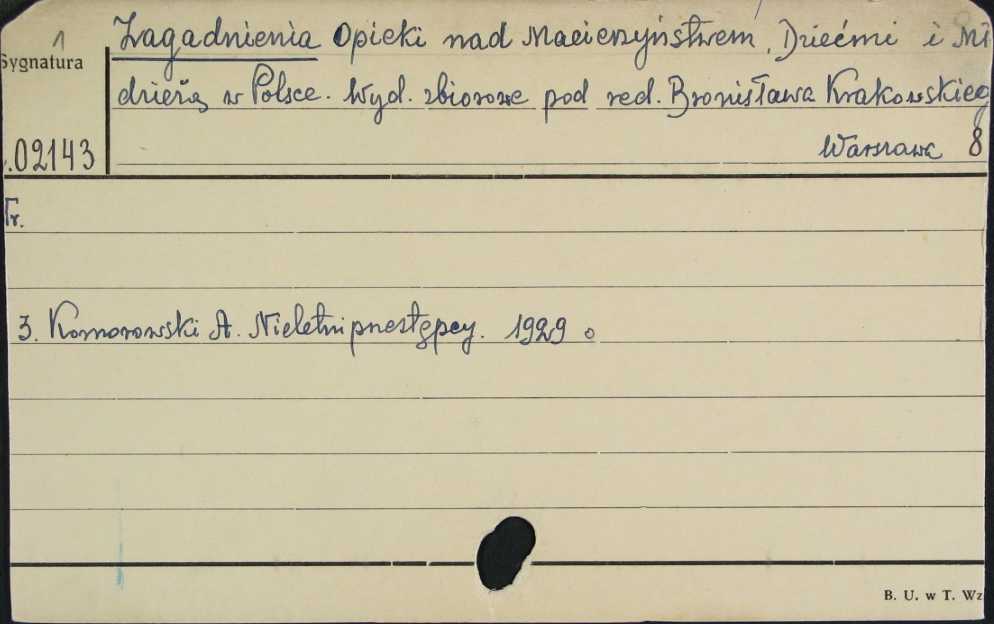 1 Zagadnienia Opieki nad Macierzyństwem, Dziećmi i Mł
Sygnatura
dzieżą w Polsce. Wyd. zbiorowe pod red. Bronisława Krakowskieg
.02143 Warszawa 8
Tr.
3. Komorowski A. Nieletni przestępcy. 1929
B. U. w T. Wz